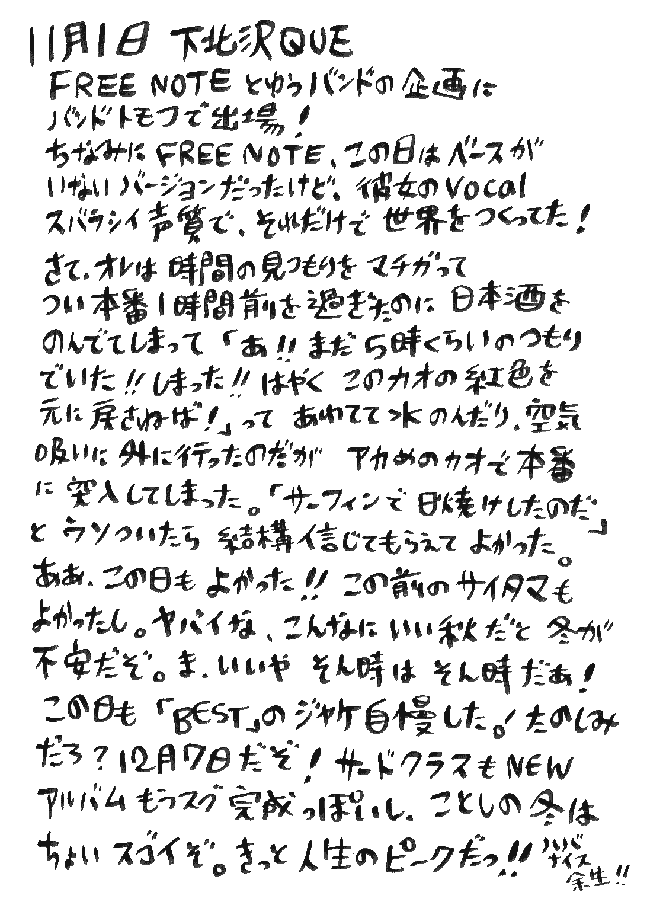 11月1日 下北沢QUE
FREE NOTE とゆうバンドの企画に
バンドトモフで出場!
ちなみに FREE NOTE、この日はベースが
いないバージョンだったけど、彼女のVocal
スバラシイ声質で、それだけで世界をつくってた!
さて、オレは時間の見つもりをマチガって
つい本番1時間前を過ぎたのに日本酒を
のんでてしまって「あ!!まだ5時くらいのつもり
でいた!!しまった!!はやくこのカオの紅色を
元に戻さねば!」って あわてて水のんだり、空気
吸いに外に行ったのだが アカめのカオで本番
に突入してしまった。「サーフィンで日焼けしたのだ」
とウソついたら結構信じてもらえてよかった。
ああ、この日もよかった!!この前のサイタマも
よかったし。ヤバイな、こんなにいい秋だと冬が
不安だぞ。ま、いいや そん時はそん時だぁ!
この日も「BEST」のジャケ自慢した。!たのしみ
だろ?12月7日だぞ!サードクラスもNEW
アルバムもうスグ完成っぽいし、ことしの冬は
ちょいスゴイぞ。きっと人生のピークだっ!!
ハバ
ナイス
余生!!